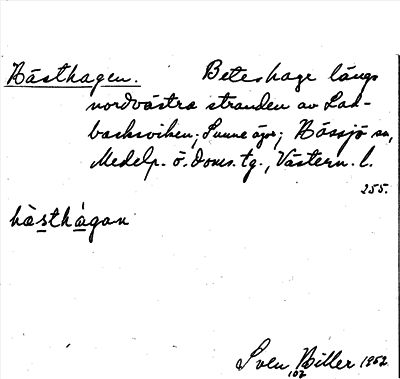 Hästhagen. Beteshage längs
nordvästra stranden av Lad-
backsviken; Sunne ägor; Hässjö sn,
Medelp. ö. doms. tg., Västern. l.
255.
hàsthágan
Sven Hiller 1952